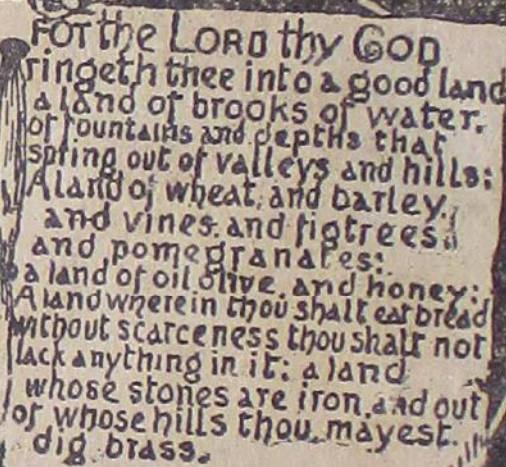 FOr the LORD thy GOD
ringeth thee into a good land
a land of brooks of water.
of fountains and depths that
spring out of valleys and hills:
A land of wheat, and barley,
and vines. and figtrees.
and pomegranates:
a land of oil olive. and honey:
A land wherein thou shalt eat bread
without scarceness thou shalt not
lack anything in it: a land
whose stones are iron, and out
of whose hills thou mayest
dig brass.